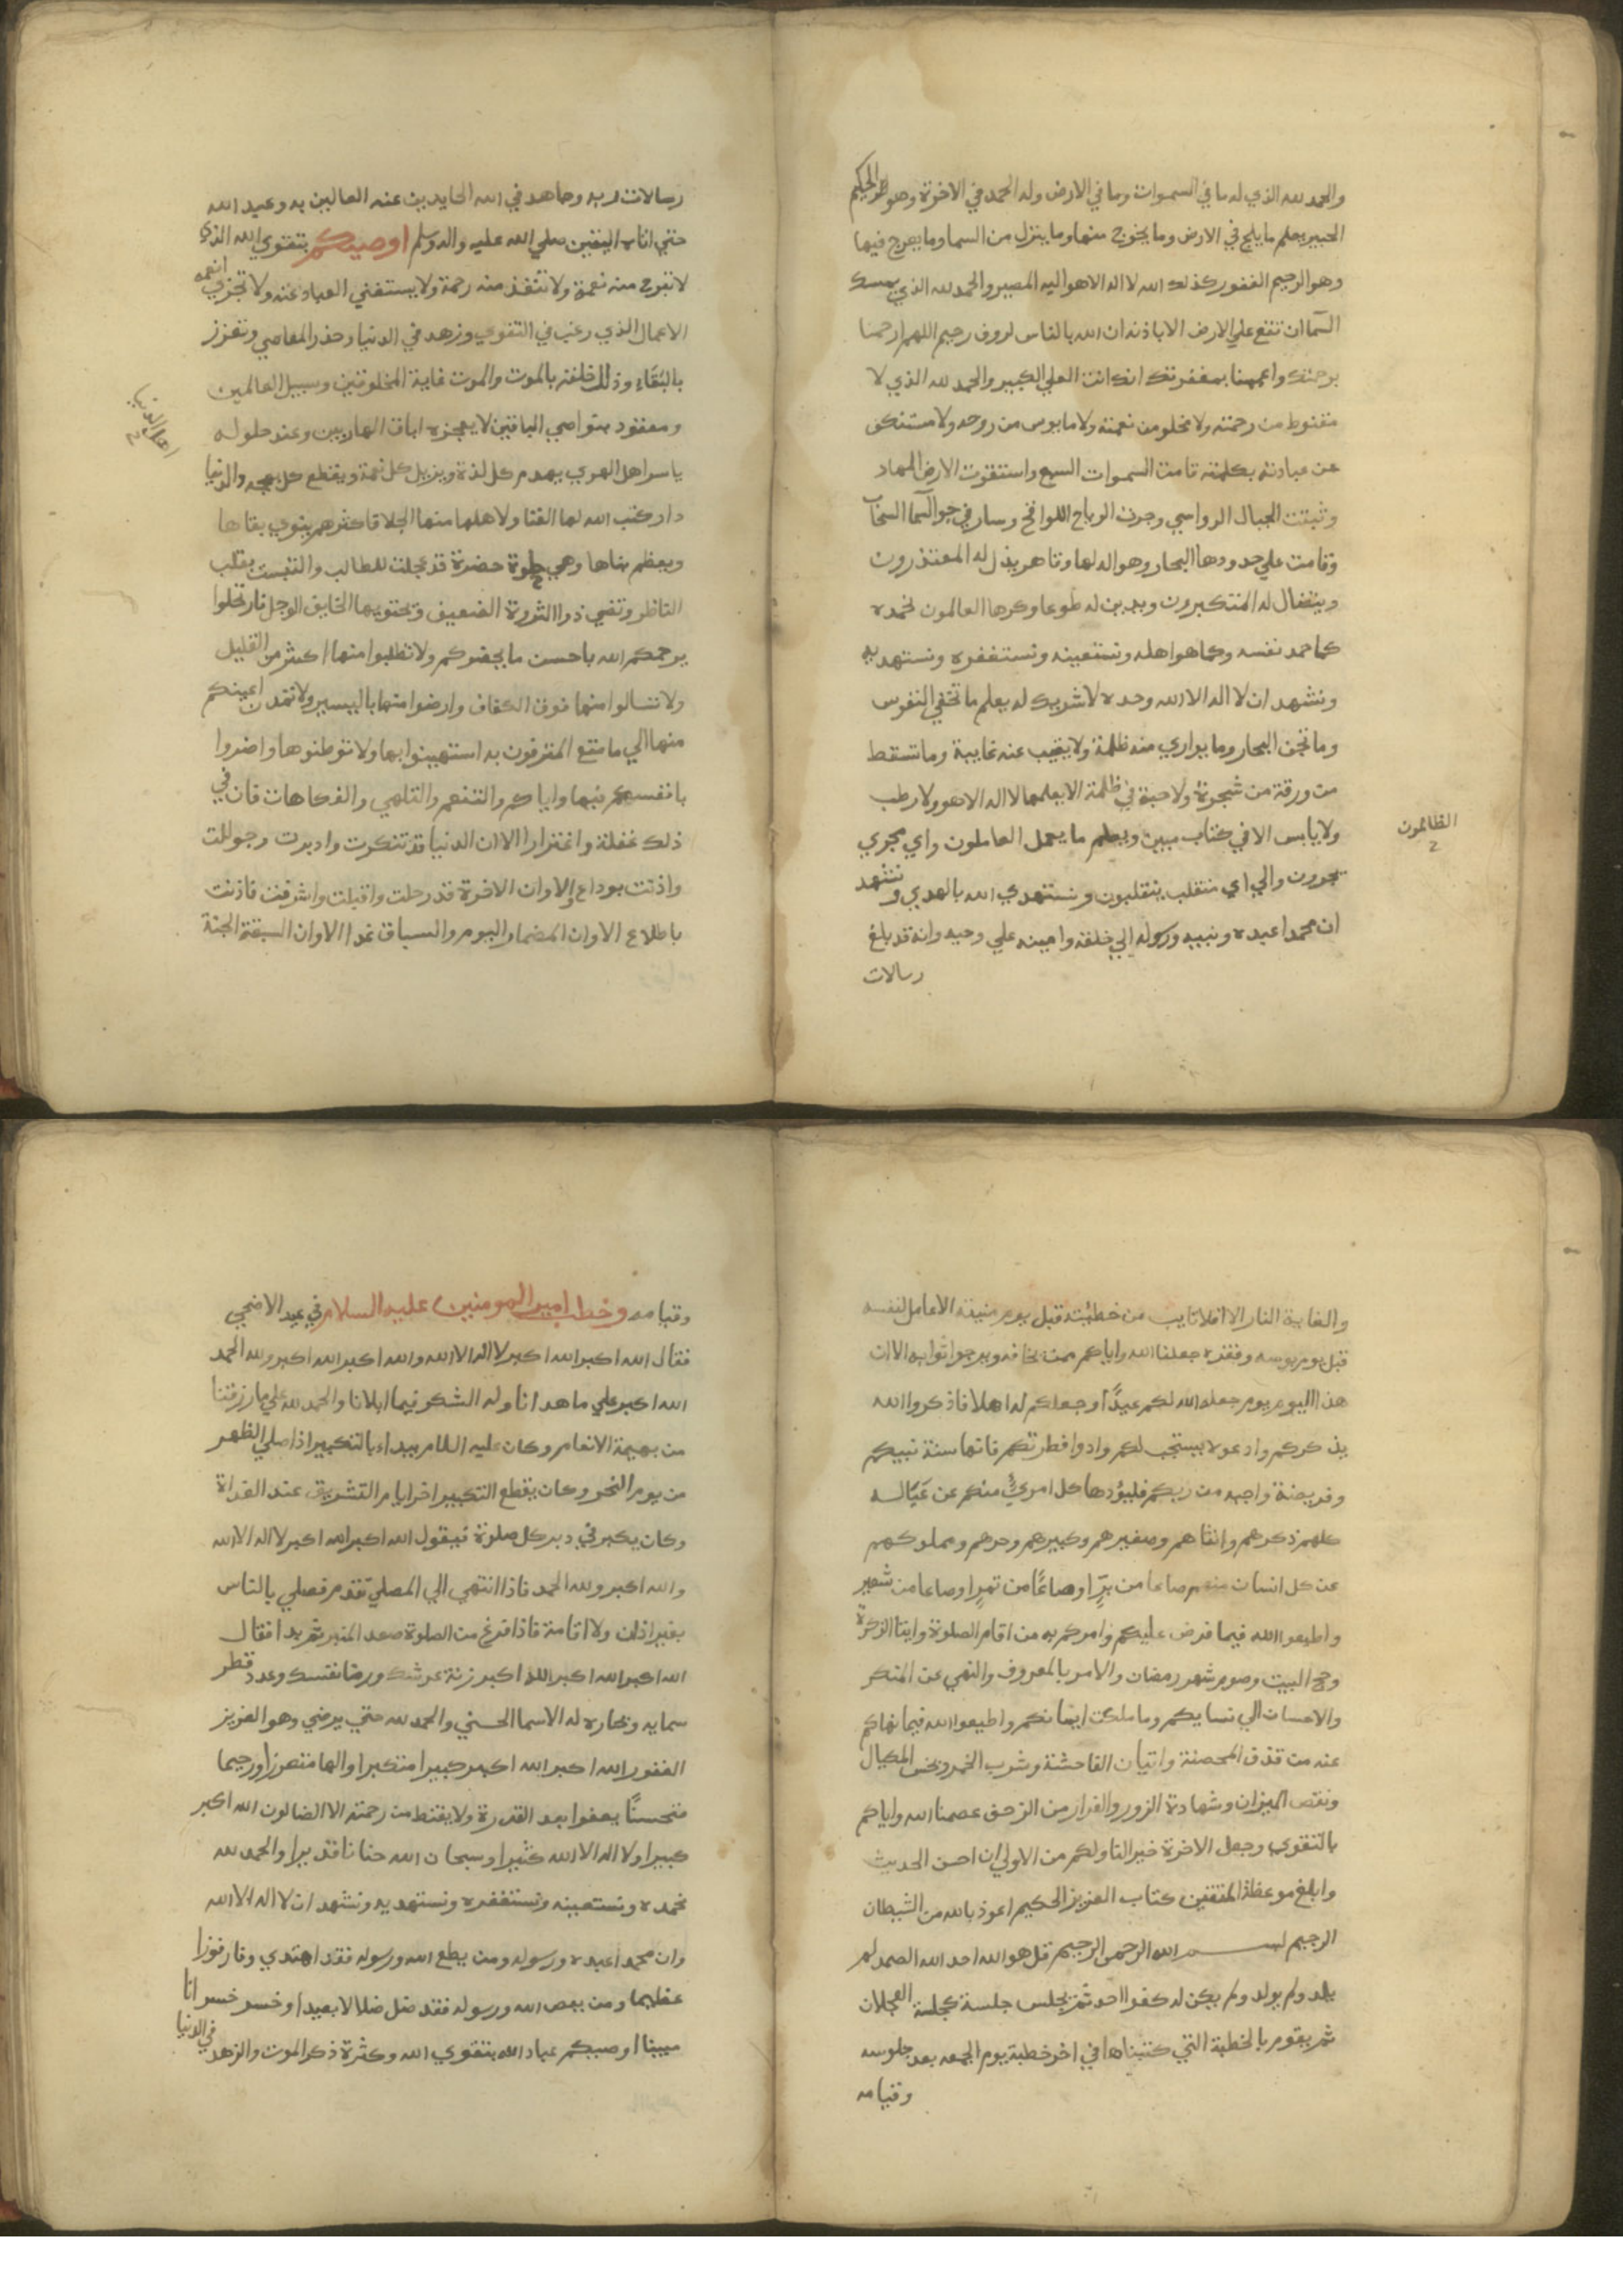 والحمد لله الذي له ما في السموات وما في الارض وله الحمد في الاخرة وهو الحكيم
الخبير يعلم ما يلج في الارض وما يخرج منها وما ينزل من السما وما يعرج فيها
وهو الرحيم الغفور كذلك الله لا اله الا هو اليه المصير والحمد لله الذي يمسك
السمآ ان تقع علي الارض الا باذنه ان الله بالناس لروف رحيم اللهم ارحمنا
برحمتك واعممنا بمغفرتك انك انت العلي الكبير والحمد لله الذي لا
مقنوط من رحمته ولا مخلو من نعمته ولا مايوس من روحه ولا مستنكف
عن عبادته بكلمته قامت السموات السبع واستقرت الارض المهاد
وثبتت الجبال الرواسي وجرت الرياح اللواقح وسار في جو السمآ السحاب
وقامت علي حدودها البحار وهو اله لها وقاهر يذل له المعتذرون
ويتضال له المتكبرون ويدين له طوعا وكرها العالمون نحمده
كما حمد نفسه وكما هو اهله ونستعينه ونستغفره ونستهديه
ونشهد ان لا اله الا الله وحده لا شريك له يعلم ما تخفي النفوس
وما تجن البحار وما يواري منه ظلمة ولا يغيب عنه غايبة وما تسقط
من ورقة من شجرة ولا حبة في ظلمة الا يعلمها لا اله الا هو ولا رطب
ولا يابس الا في كتاب مبين ويعلم ما يعمل العاملون واي مجري
الظالمون
يجرون والي اي منقلب ينقلبون ونستهدي الله بالهدي ونشهد
ان محمدا عبده ونبيه ورسوله الي خلقه وامينه علي وحيه وانه قد بلغ
رسالات
رسالات ربه وجاهد في الله الحايدين عنه العالين به وعبد الله
حتي اتاه اليقين صلي الله عليه واله وسلم اوصيكم بتقوي الله الذي
لا تبرح منه نعمة ولا تنفذ منه رحمة ولا يستغني العباد عنه ولا تجزي انعمه
الاعمال الذي رغب في التقوي وزهد في الدنيا وحذر المعاصي وتعزز
بالبقآء وذلل خلقه بالموت والموت غاية المخلوقين وسبيل العالمين
ومعقود بنواصي الباقين لا يعجزه اباق الهاربين وعند حلوله
اهل الدنيا
ياسر اهل الهوي يهدم كل لذة ويزيل كل نعمة ويقطع كل بهجه والدنيا
دار كتب الله لها الفنا ولاهلها منها الجلا فاكثرهم ينوي بقاها
ويعظم بناها وهي حلوة خضرة قد عجلت للطالب والتبست بقلب
الناظر وتضي ذوا الثروة الضعيف وتحتويها الخايف الوجل فارتحلوا
يرحمكم الله باحسن ما بحضرتكم ولا تطلبوا منها اكثر من القليل
ولا تسالوا منها فوق الكفاف وارضوا منها باليسير ولا تمدن اعينكم
منها الي ما متع المترفون به استهينوا بها ولا توطنوها واضروا
بانفسكم فيها واياكم والتنعم والتلهي والفكاهات فان في
ذلك غفلة واغترارا الا ان الدنيا قد تنكرت وادبرت وحوللت
واذنت بوداع الا وان الاخرة قد رحلت واقبلت واشرفت فاذنت
باطلاع الا وان المضمار اليوم والسباق غدا الا وان السبقة الجنة
والغاية النار الا افلا تايب من خطيئته قبل يوم منيته الا عامل لنفسه
قبل يوم بوسه وفقره جعلنا الله واياكم ممن يخافه ويرجو ثوابه الا ان
هذا اليوم يوم جعله الله لكم عيدًا وجعلكم له اهلا فاذكروا الله
يذكركم وادعوه يستجب لكم وادوا فطرتكم فانها سنة نبيكم
وفريضة واجبه من ربكم فليؤدها كل امريٍ منكم عن عياله
كلهم ذكرهم وانثاهم وصغيرهم وكبيرهم وحرهم ومملوكهم
عن كل انسان منهم صاعا من برٍ او صاعًا من تمرٍ او صاعا من شعير
واطيعوا الله فيما فرض عليكم وامركم به من اقام الصلوة وايتا الزكوة
وحج البيت وصوم شهر رمضان والامر بالمعروف والنهي عن المنكر
والاحسان الي نسايكم وما ملكت ايمانكم واطيعوا الله فيما نهاكم
عنه من قذف المحصنة واتيان الفاحشة وشرب الخمر وبخس المكيال
ونقص الميزان وشهادة الزور والفرار من الزحف عصمنا الله واياكم
بالتقوي وجعل الاخرة خير لنا ولكم من الاولي ان احسن الحديث
وابلغ موعظة المتقين كتاب العزيز الحكيم اعوذ بالله من الشيطان
الرجيم بسم الله الرحمن الرحيم قل هو الله احد الله الصمد لم
يلد ولم يولد ولم يكن له كفوا احد ثم يجلس جلسة كجلسة العجلان
ثم يقوم بالخطبة التي كتبناها في اخر خطبة يوم الجمعه بعد جلوسه
وقيامه
وقيامه وخطب امير المومنين عليه السلام في عيد الاضحي
فقال الله اكبر الله اكبر لا اله الا الله والله اكبر الله اكبر ولله الحمد
الله اكبر علي ما هدانا وله الشكر فيما ابلانا والحمد لله علي ما رزقنا
من بهيمة الانعام وكان عليه السلام يبداء بالتكبير اذا صلي الظهر
من يوم النحر وكان يقطع التكبير اخر ايام التشريق عند الغداة
وكان يكبر في دبر كل صلوة فيقول الله اكبر الله اكبر لا اله الا الله
والله اكبر ولله الحمد فاذا انتهي الي المصلي تقدم فصلي بالناس
بغير اذان ولا اقامة فاذا فرغ من الصلوة صعد المنبر ثم بدا فقال
الله اكبر الله اكبر الله اكبر زنة عرشك ورضا نفسك وعدد قطر
سمايه وبحاره له الاسما الحسني والحمد لله حتي يرضي وهو العزيز
الغفور الله اكبر الله اكبر كبيرا متكبرا والها متعززا ورحيما
متحسنًا يعفوا بعد القدرة ولا يقنط من رحمته الا الضالون الله اكبر
كبيرا ولا اله الا الله كثيرا وسبحان الله حنانا قديرا والحمد لله
نحمده ونستعينه ونستغفره ونستهديه ونشهد ان لا اله الا الله
وان محمدا عبده ورسوله ومن يطع الله ورسوله فقد اهتدي وفاز فوزا
عظيما ومن يعص الله ورسوله فقد ضل ضلالا بعيدا وخسر خسرانا
مبينا اوصيكم عباد الله بتقوي الله وكثرة ذكر الموت والزهد في الدنيا